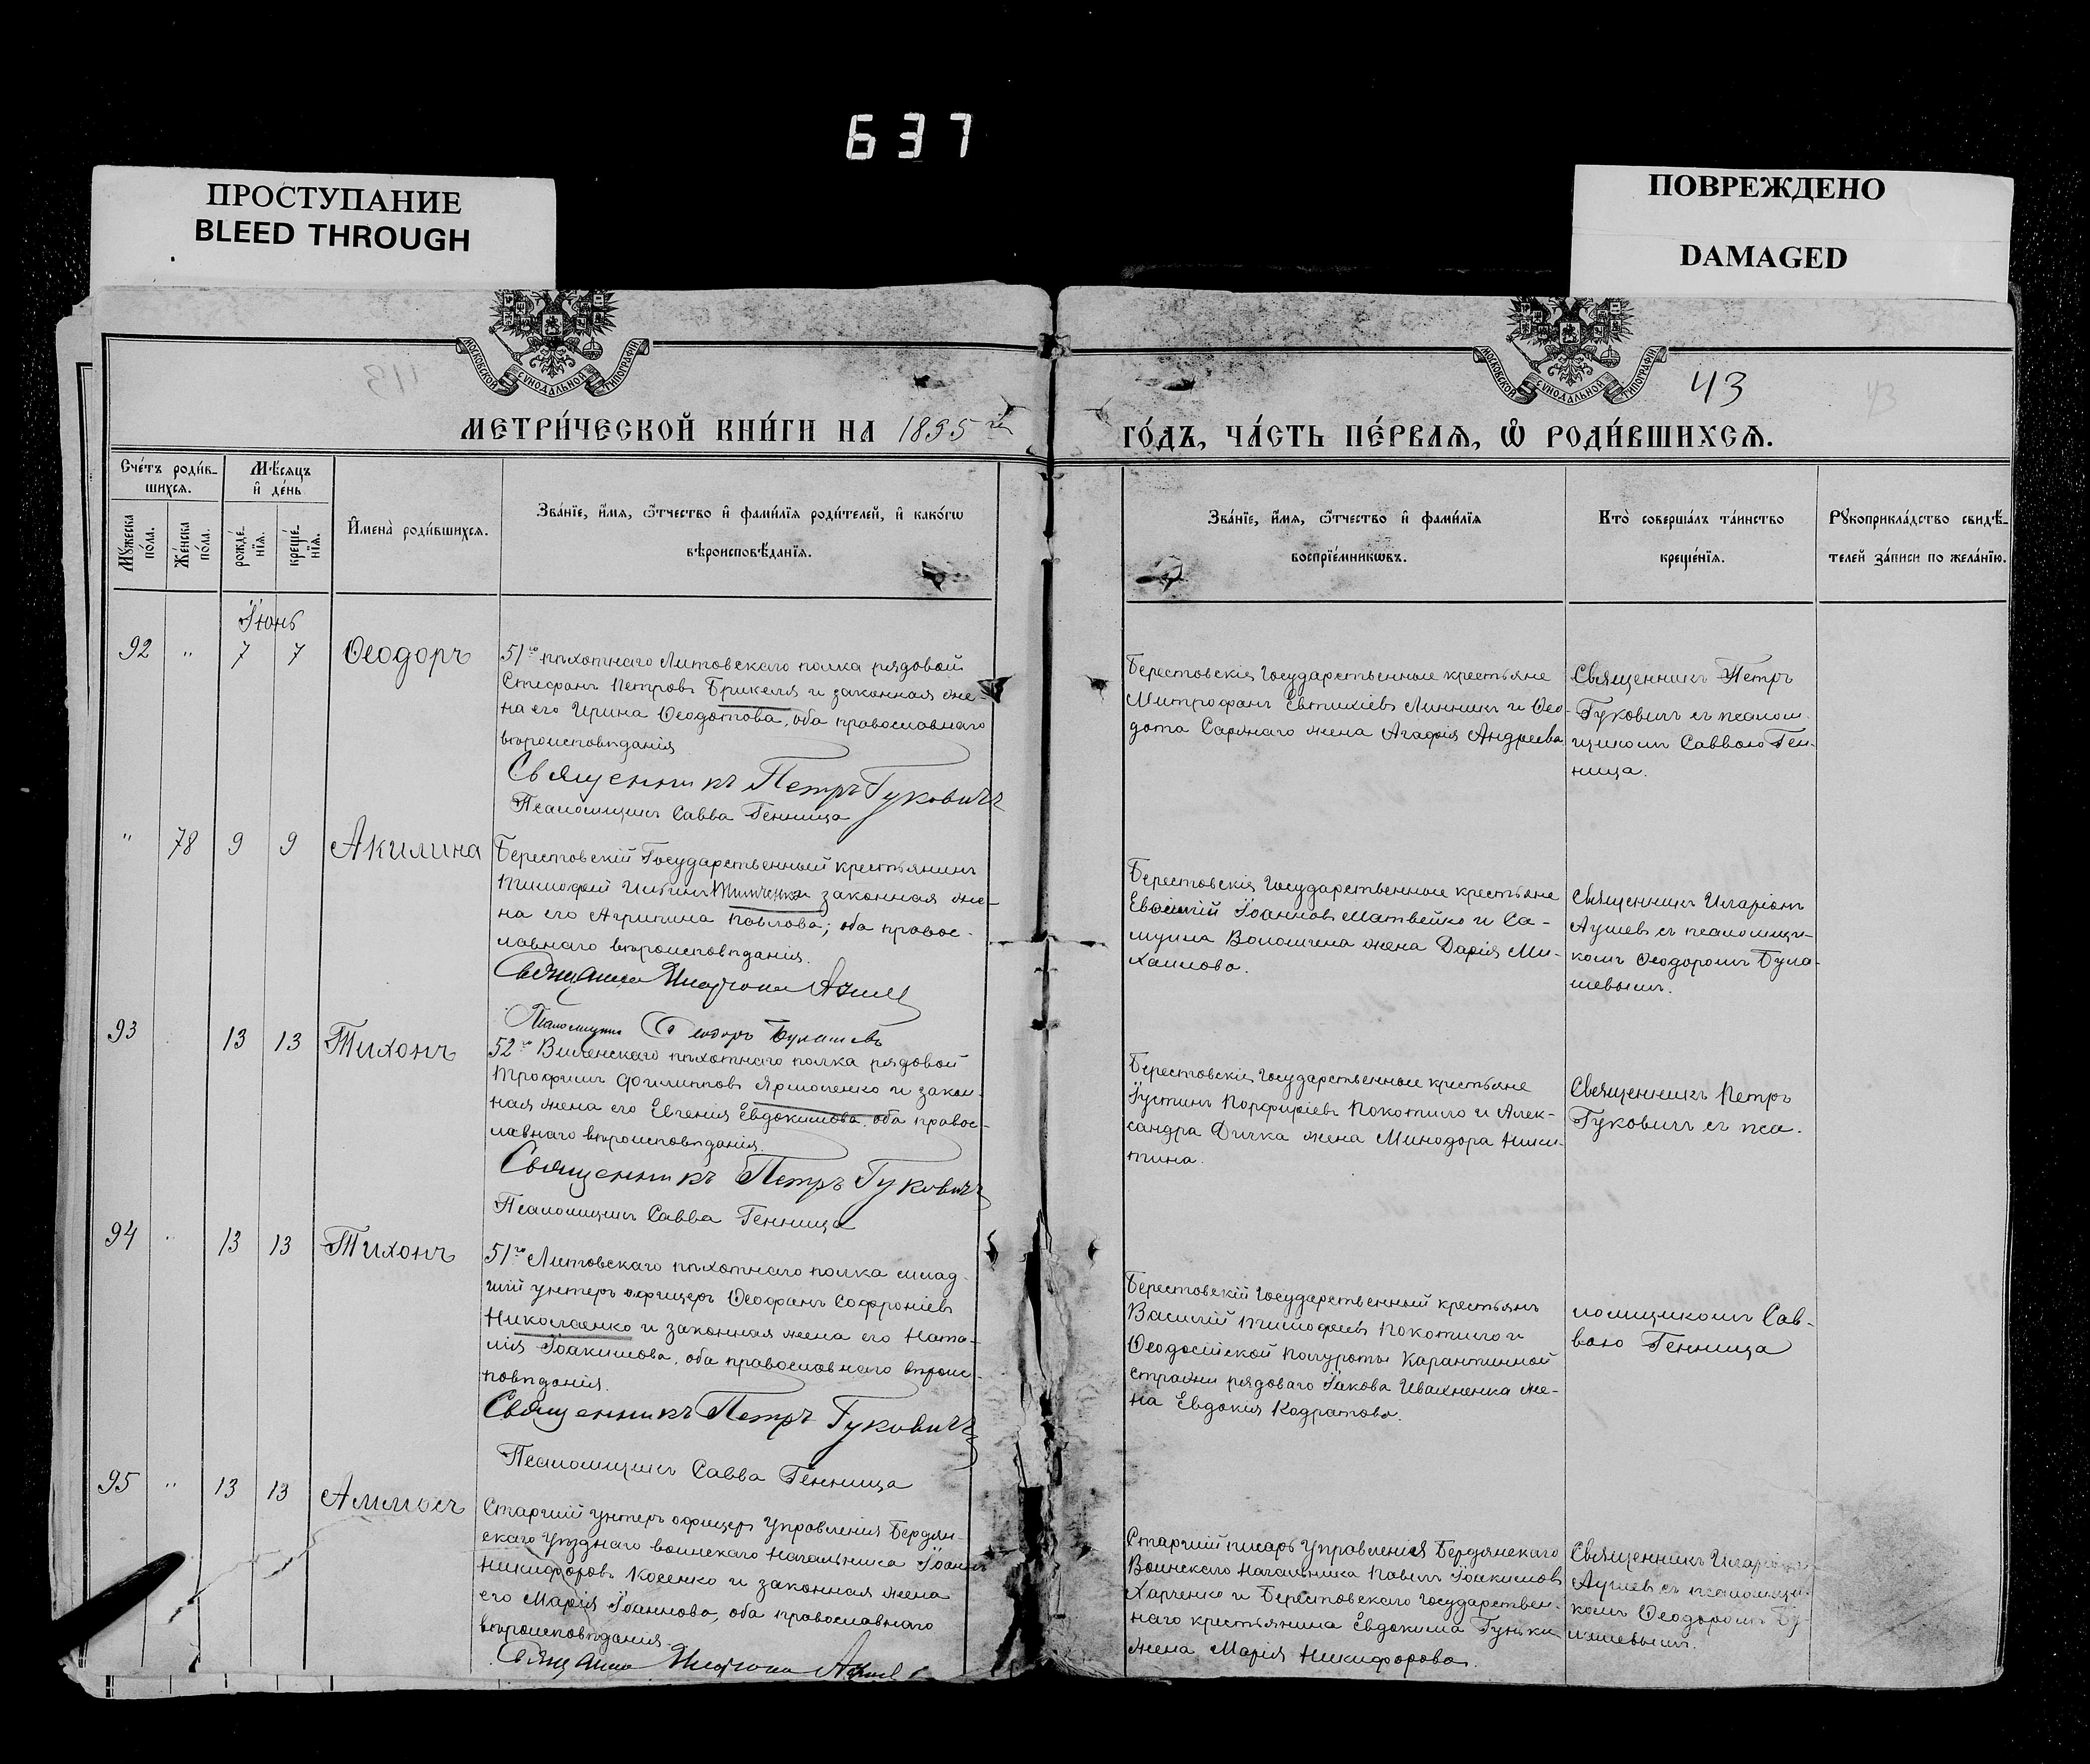 637
ПРОСТУПАНИЕ
BLEED THROUGH
ПОВРЕЖДЕНО
DAMAGED
МОСКОВСКОЙ СУНОДАЛЬНОЙ ТИПОГРАФІИ
МОСКОВСКОЙ СУНОДАЛЬНОЙ ТИПОГРАФІИ
43
МЕТРИ́ЧЕСКОЙ КНИ́ГИ НА 1895 го́
ГО́ДЪ, ЧА́СТЬ ПЕ́РВАѦ, Ѡ҆ РОДИ́ВШИХСѦ.
Сче́тъ роди́в-
шихсѧ.
Мѣ́сѧцъ
и҆ де́нь
Мꙋ́жеска
по́ла.
Же́нска
по́ла.
рожде́-
нїѧ.
креще́-
нїѧ.
И҆мена̀ роди́вшихсѧ.
Зва́нїе, и҆́мѧ, ѻ҆́тчество и҆ фами́лїѧ роди́телей, и҆ како́гѡ
вѣроисповѣ́данїѧ.
Зва́нїе, и҆́мѧ, ѻ҆́тчество и҆ фами́лїѧ
воспрїе́мникѡвъ.
Кто̀ соверша́лъ та́инство
креще́нїѧ.
Рꙋкоприкла́дство свидѣ́-
телей за́писи по жела́нїю.
Іюнь
92 " 7 7 Ѳеодоръ
51го пѣхотнаго Литовскаго полка рядовой
Стефанъ Петровъ Брикеля и законная же-
на его Ирина Ѳеодотова, оба православнаго
вѣроисповѣданія
Священникъ Петръ Гуковичъ
Псаломщикъ Савва Генница
Берестовскіе Государственные крестьяне
Митрофанъ Евтихіевъ Линникъ и Ѳео-
дота Сарянаго жена Агафія Андреева
Священникъ Петръ
Гуковичъ съ псалом-
щикомъ Саввою Ген-
ница.
" 78 9 9 Акилина
Берестовскій Государственный крестьянинъ
Тимофей Ильинъ и законная же-
на его Агрипина Павлова; оба правос-
лавнаго вѣроисповѣданія.
Священникъ Иларіонъ
Псаломщикъ Ѳеодоръ Булашевъ
Берестовскіе Государственные крестьяне
Евѳимій Іоанновъ Матвейко и Са-
муила Волошена жена Дарія Ми-
хаилова.
Священникъ Иларіонъ
съ псаломщи-
комъ Ѳеодоромъ Була-
шевымъ.
93 13 13 Тихонъ
52го Виленскаго пѣхотнаго полка рядовой
Трофимъ Филипповъ Ярмоленко и закон-
ная жена его Евгенія Евдокимова, оба правос-
лавнаго вѣроисповѣданія.
Священникъ Петръ Гуковичъ
Псаломщикъ Савва Генница
Берестовскіе Государственные крестьяне
Іустинъ Порфиріевъ Покотило и Алек-
сандра Дичка жена Минодора Ники-
тина.
Священникъ Петръ
Гуковичъ съ пса-
94 13 13 Тихонъ
51го Литовскаго пѣхотнаго полка млад-
шій унтеръ офицеръ Ѳеофанъ Софроніевъ
Николаенко и законная жена его Ната-
лія Іоакимова, оба православнаго вѣроис-
повѣданія.
Священникъ Петръ Гуковичъ
Псаломщикъ Савва Генница
Берестовскій Государственный крестьянъ
Василій Тимофеевъ Покотило и
Ѳеодосійской полуроты Карантинной
стражи рядоваго Іакова Ивахненка же-
на Евдокія Кодратова.
ломщикомъ Сав-
вою Генница
95 " 13 13 Аммосъ
Старшій унтеръ офицеръ Управленія Бердян-
скаго Уѣзднаго воинскаго Начальника Іоаннъ
Никифоровъ Косенко и законная жена
его Марія Іоаннова, оба православнаго
вѣроисповѣданія.
Священникъ Иларіонъ
Старшій писарь Управленія Бердянскаго
Воинскаго Начальника Павелъ Іоакимовъ
Харченко и Берестовскаго Государствен-
наго крестьянина Евдокима Гуньки
жена Марія Никифорова.
Священникъ Иларіонъ
съ псаломщи-
комъ Ѳеодоромъ Бу-
лашевымъ.